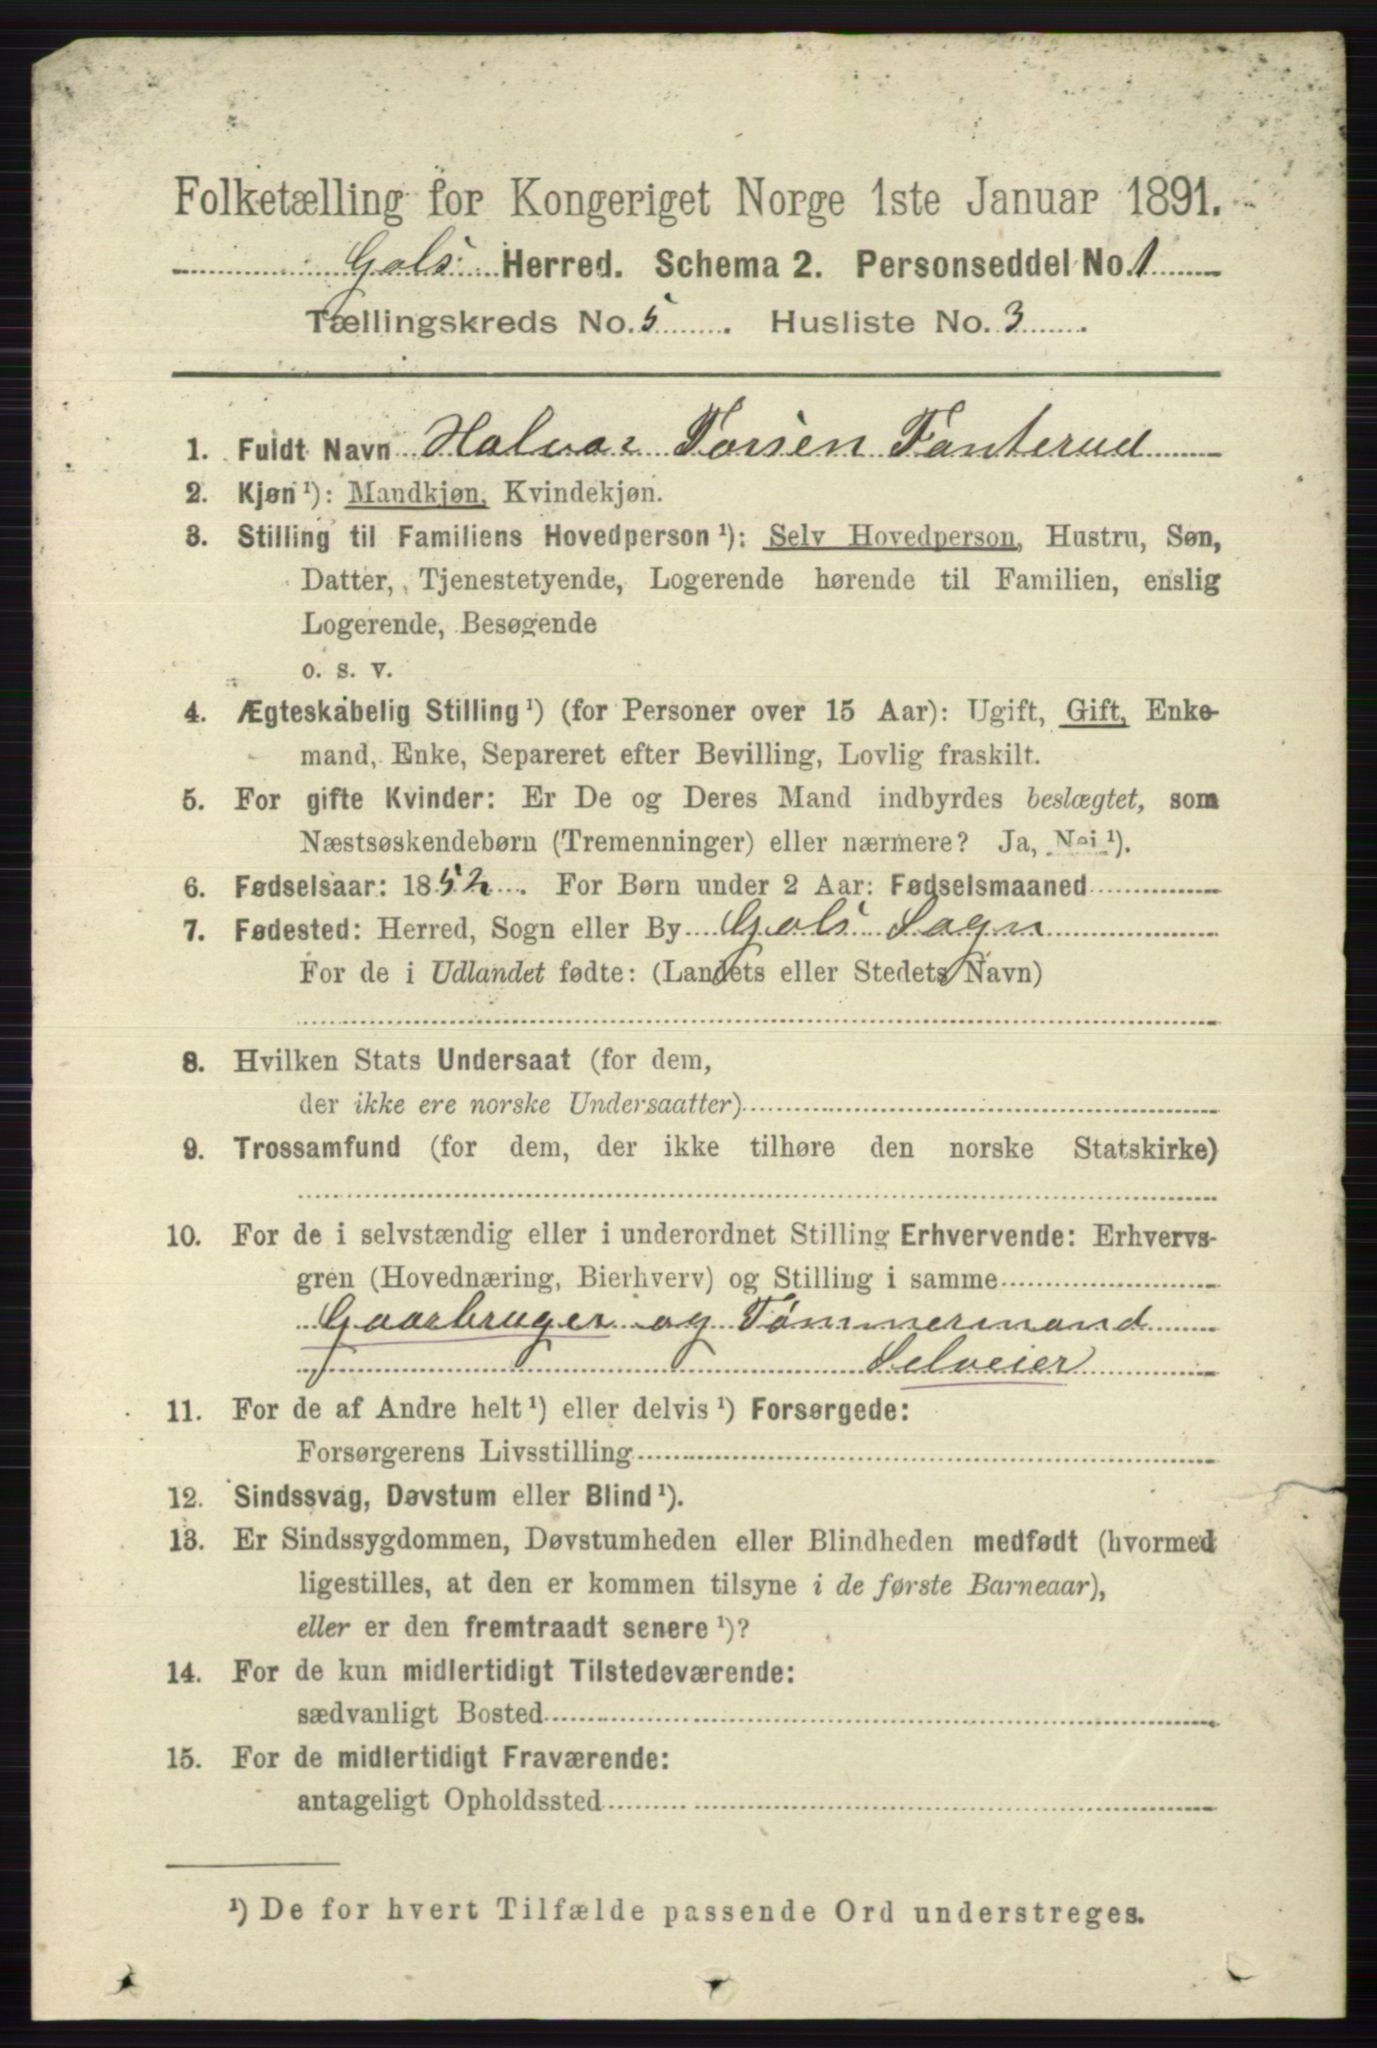 Folketælling for Kongeriget Norge 1ste Januar 1891.
Gols Herred. Schema 2. Personseddel No. 1
Tællingskreds No. 5. Husliste No. 3.
1. Fuldt Navn Halvor Torsen Fanterud
2. Kjøn ¹): Mandkjøn, Kvindekjøn.
3. Stilling til Familiens Hovedperson ¹): Selv Hovedperson, Hustru, Søn,
Datter, Tjenestetyende, Logerende hørende til Familien, enslig
Logerende, Besøgende
o. s. v.
4. Ægteskabelig Stilling ¹) (for Personer over 15 Aar): Ugift, Gift, Enke-
mand, Enke, Separeret efter Bevilling, Lovlig fraskilt.
5. For gifte Kvinder: Er De og Deres Mand indbyrdes beslægtet, som
Næstsøskendebørn (Tremenninger) eller nærmere? Ja, Nei ¹).
6. Fødselsaar: 1852. For Børn under 2 Aar: Fødselsmaaned
7. Fødested: Herred, Sogn eller By Gols Sogn
For de i Udlandet fødte: (Landets eller Stedets Navn)
8. Hvilken Stats Undersaat (for dem,
der ikke ere norske Undersaatter)
9. Trossamfund (for dem, der ikke tilhøre den norske Statskirke)
10. For de i selvstændig eller i underordnet Stilling Erhvervende: Erhvervs-
gren (Hovednæring, Bierhverv) og Stilling i samme
Gaarbruger og Tømmermand
Selveier
11. For de af Andre helt ¹) eller delvis ¹) Forsørgede:
Forsørgerens Livsstilling
12. Sindssvag, Døvstum eller Blind ¹).
13. Er Sindssygdommen, Døvstumheden eller Blindheden medfødt (hvormed
ligestilles, at den er kommen tilsyne i de første Barneaar),
eller er den fremtraadt senere ¹)?
14. For de kun midlertidigt Tilstedeværende:
sædvanligt Bosted
15. For de midlertidigt Fraværende:
antageligt Opholdssted
¹) De for hvert Tilfælde passende Ord understreges.